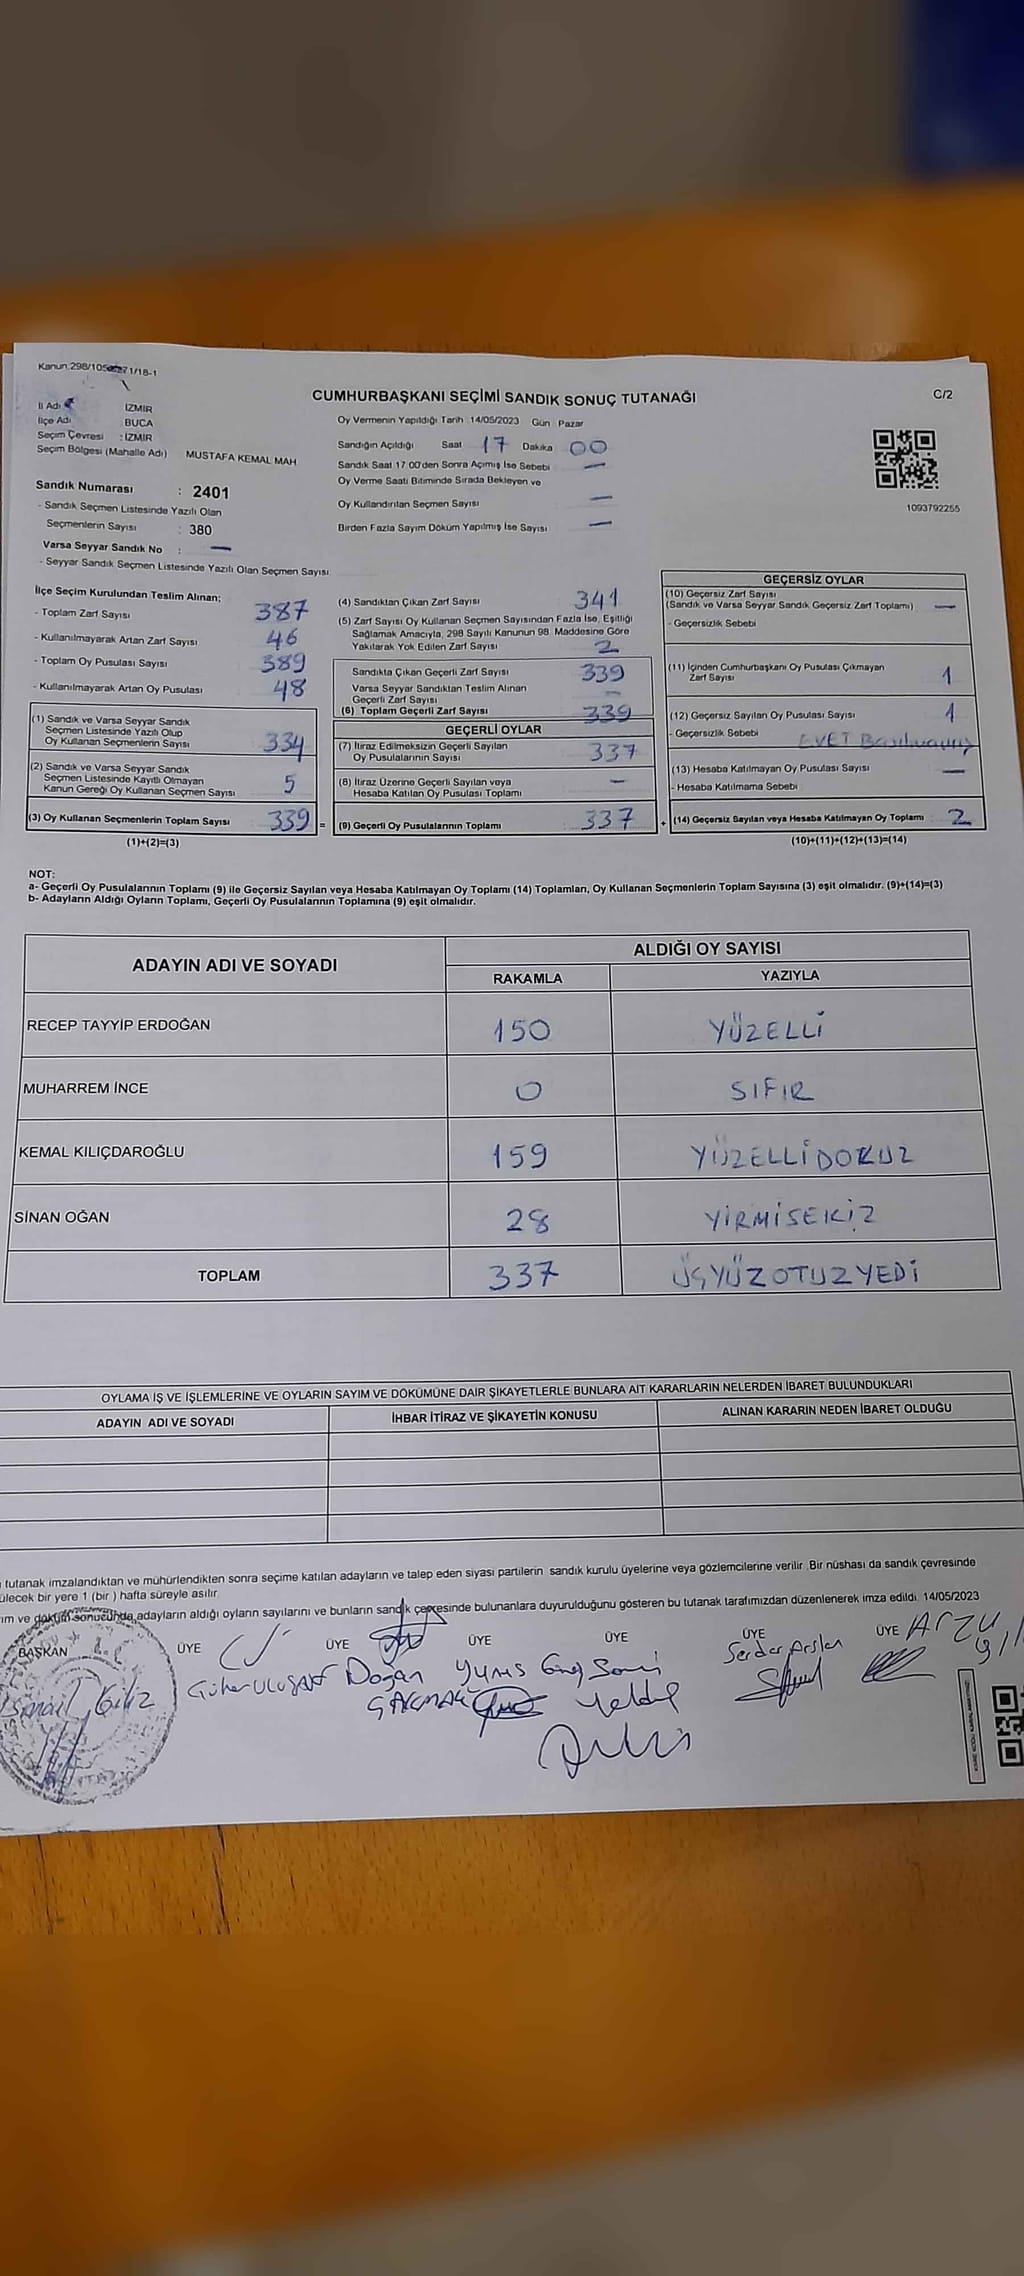 CUMHURBAŞKANI SEÇİMİ SANDIK SONUÇ TUTANAĞI
C/2
İl Adı İZMİR
İlçe Adı BUCA
Seçim Çevresi : İZMİR
Seçim Bölgesi (Mahalle Adı) MUSTAFA KEMAL MAH
Sandık Numarası : 2401
- Sandık Seçmen Listesinde Yazılı Olan
Seçmenlerin Sayısı : 380
Varsa Seyyar Sandık No : —
- Seyyar Sandık Seçmen Listesinde Yazılı Olan Seçmen Sayısı
Oy Vermenin Yapıldığı Tarih 14/05/2023 Gün Pazar
Sandığın Açıldığı Saat 17 Dakika 00
Sandık Saat 17.00'den Sonra Açılmış İse Sebebi —
Oy Verme Saati Bitiminde Sırada Bekleyen ve
Oy Kullandırılan Seçmen Sayısı —
Birden Fazla Sayım Döküm Yapılmış İse Sayısı —
1093792255
İlçe Seçim Kurulundan Teslim Alınan;
- Toplam Zarf Sayısı 387
- Kullanılmayarak Artan Zarf Sayısı 46
- Toplam Oy Pusulası Sayısı 389
- Kullanılmayarak Artan Oy Pusulası 48
(1) Sandık ve Varsa Seyyar Sandık
Seçmen Listesinde Yazılı Olup
Oy Kullanan Seçmenlerin Sayısı 334
(2) Sandık ve Varsa Seyyar Sandık
Seçmen Listesinde Kayıtlı Olmayan
Kanun Gereği Oy Kullanan Seçmen Sayısı 5
(3) Oy Kullanan Seçmenlerin Toplam Sayısı 339 =
(1)+(2)=(3)
(4) Sandıktan Çıkan Zarf Sayısı 341
(5) Zarf Sayısı Oy Kullanan Seçmen Sayısından Fazla İse, Eşitliği
Sağlamak Amacıyla, 298 Sayılı Kanunun 98. Maddesine Göre
Yakılarak Yok Edilen Zarf Sayısı 2
Sandıkta Çıkan Geçerli Zarf Sayısı 339
Varsa Seyyar Sandıktan Teslim Alınan
Geçerli Zarf Sayısı —
(6) Toplam Geçerli Zarf Sayısı 339
GEÇERLİ OYLAR
(7) İtiraz Edilmeksizin Geçerli Sayılan
Oy Pusulalarının Sayısı 337
(8) İtiraz Üzerine Geçerli Sayılan veya
Hesaba Katılan Oy Pusulası Toplamı —
(9) Geçerli Oy Pusulalarının Toplamı 337 +
GEÇERSİZ OYLAR
(10) Geçersiz Zarf Sayısı
(Sandık ve Varsa Seyyar Sandık Geçersiz Zarf Toplamı) —
- Geçersizlik Sebebi
(11) İçinden Cumhurbaşkanı Oy Pusulası Çıkmayan
Zarf Sayısı 1
(12) Geçersiz Sayılan Oy Pusulası Sayısı 1
- Geçersizlik Sebebi EVET Basılmamış
(13) Hesaba Katılmayan Oy Pusulası Sayısı —
- Hesaba Katılmama Sebebi
(14) Geçersiz Sayılan veya Hesaba Katılmayan Oy Toplamı 2
(10)+(11)+(12)+(13)=(14)
NOT:
a- Geçerli Oy Pusulalarının Toplamı (9) ile Geçersiz Sayılan veya Hesaba Katılmayan Oy Toplamı (14) Toplamları, Oy Kullanan Seçmenlerin Toplam Sayısına (3) eşit olmalıdır. (9)+(14)=(3)
b- Adayların Aldığı Oyların Toplamı, Geçerli Oy Pusulalarının Toplamına (9) eşit olmalıdır.
ADAYIN ADI VE SOYADI ALDIĞI OY SAYISI
RAKAMLA YAZIYLA
RECEP TAYYİP ERDOĞAN 150 YÜZELLİ
MUHARREM İNCE 0 SIFIR
KEMAL KILIÇDAROĞLU 159 YÜZELLİDOKUZ
SİNAN OĞAN 28 YİRMİSEKİZ
TOPLAM 337 ÜÇYÜZOTUZYEDİ
OYLAMA İŞ VE İŞLEMLERİNE VE OYLARIN SAYIM VE DÖKÜMÜNE DAİR ŞİKAYETLERLE BUNLARA AİT KARARLARIN NELERDEN İBARET BULUNDUKLARI
ADAYIN ADI VE SOYADI İHBAR İTİRAZ VE ŞİKAYETİN KONUSU ALINAN KARARIN NEDEN İBARET OLDUĞU
tutanak imzalandıktan ve mühürlendikten sonra seçime katılan adayların ve talep eden siyasi partilerin sandık kurulu üyelerine veya gözlemcilerine verilir. Bir nüshası da sandık çevresinde
bir yere 1 (bir) hafta süreyle asılır.
ve döküm sonucunda adayların aldığı oyların sayılarını ve bunların sandık çevresinde bulunanlara duyurulduğunu gösteren bu tutanak tarafımızdan düzenlenerek imza edildi. 14/05/2023
BAŞKAN ÜYE ÜYE ÜYE ÜYE ÜYE ÜYE
Doğan Yunus Serdar Arslan ARZU